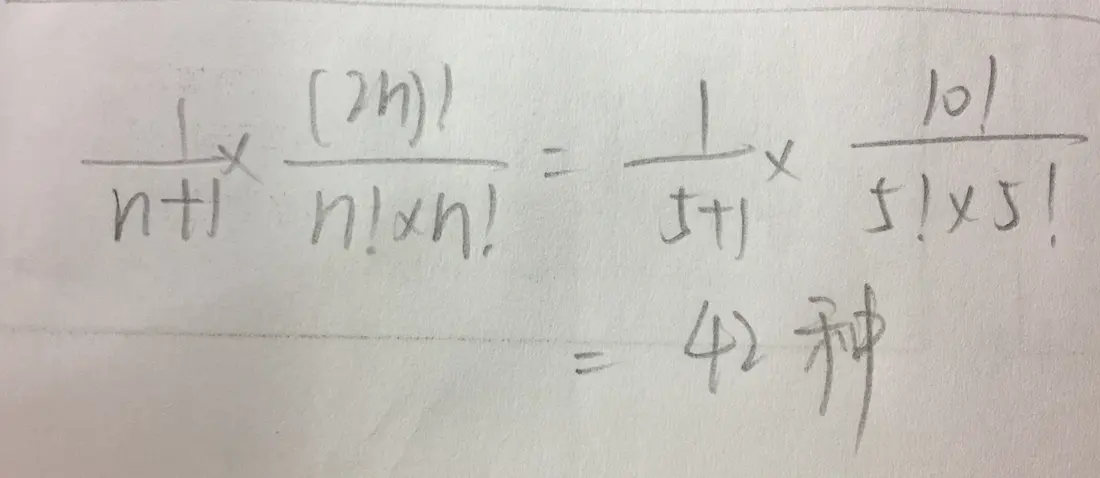 1/(n+1) × (2n)!/(n!×n!) = 1/(5+1) × 10!/(5!×5!)
= 42 种